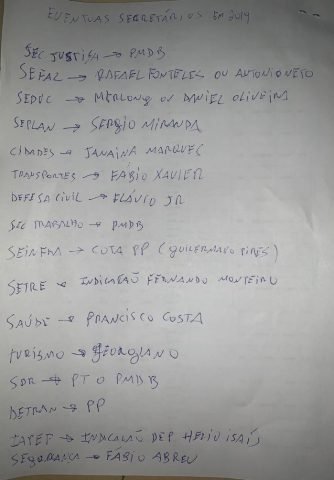 EVENTUAS SECRETÁRIOS EM 2019
SEC JUSTIÇA → PMDB
SEFAZ → RAFAEL FONTELES OU ANTONIO NETO
SEDUC → MERLONG OU DANIEL OLIVEIRA
SEPLAN → SERGIO MIRANDA
CIDADES → JANAINA MARQUES
TRANSPORTES → FÁBIO XAVIER
DEFESA CIVIL → FLÁVIO JR
SEC TRABALHO → PMDB
SEINFRA → COTA PP (GUILHERMANO PIRES)
SETRE → INDICAÇÃO FERNANDO MONTEIRO
SAÚDE → FRANCISCO COSTA
TURISMO → GEORGIANO
SDR → PT O PMDB
DETRAN → PP
IATEF → INDICAÇÃO DEP HELIO ISAÍS
SEGURANCA → FÁBIO ABREU